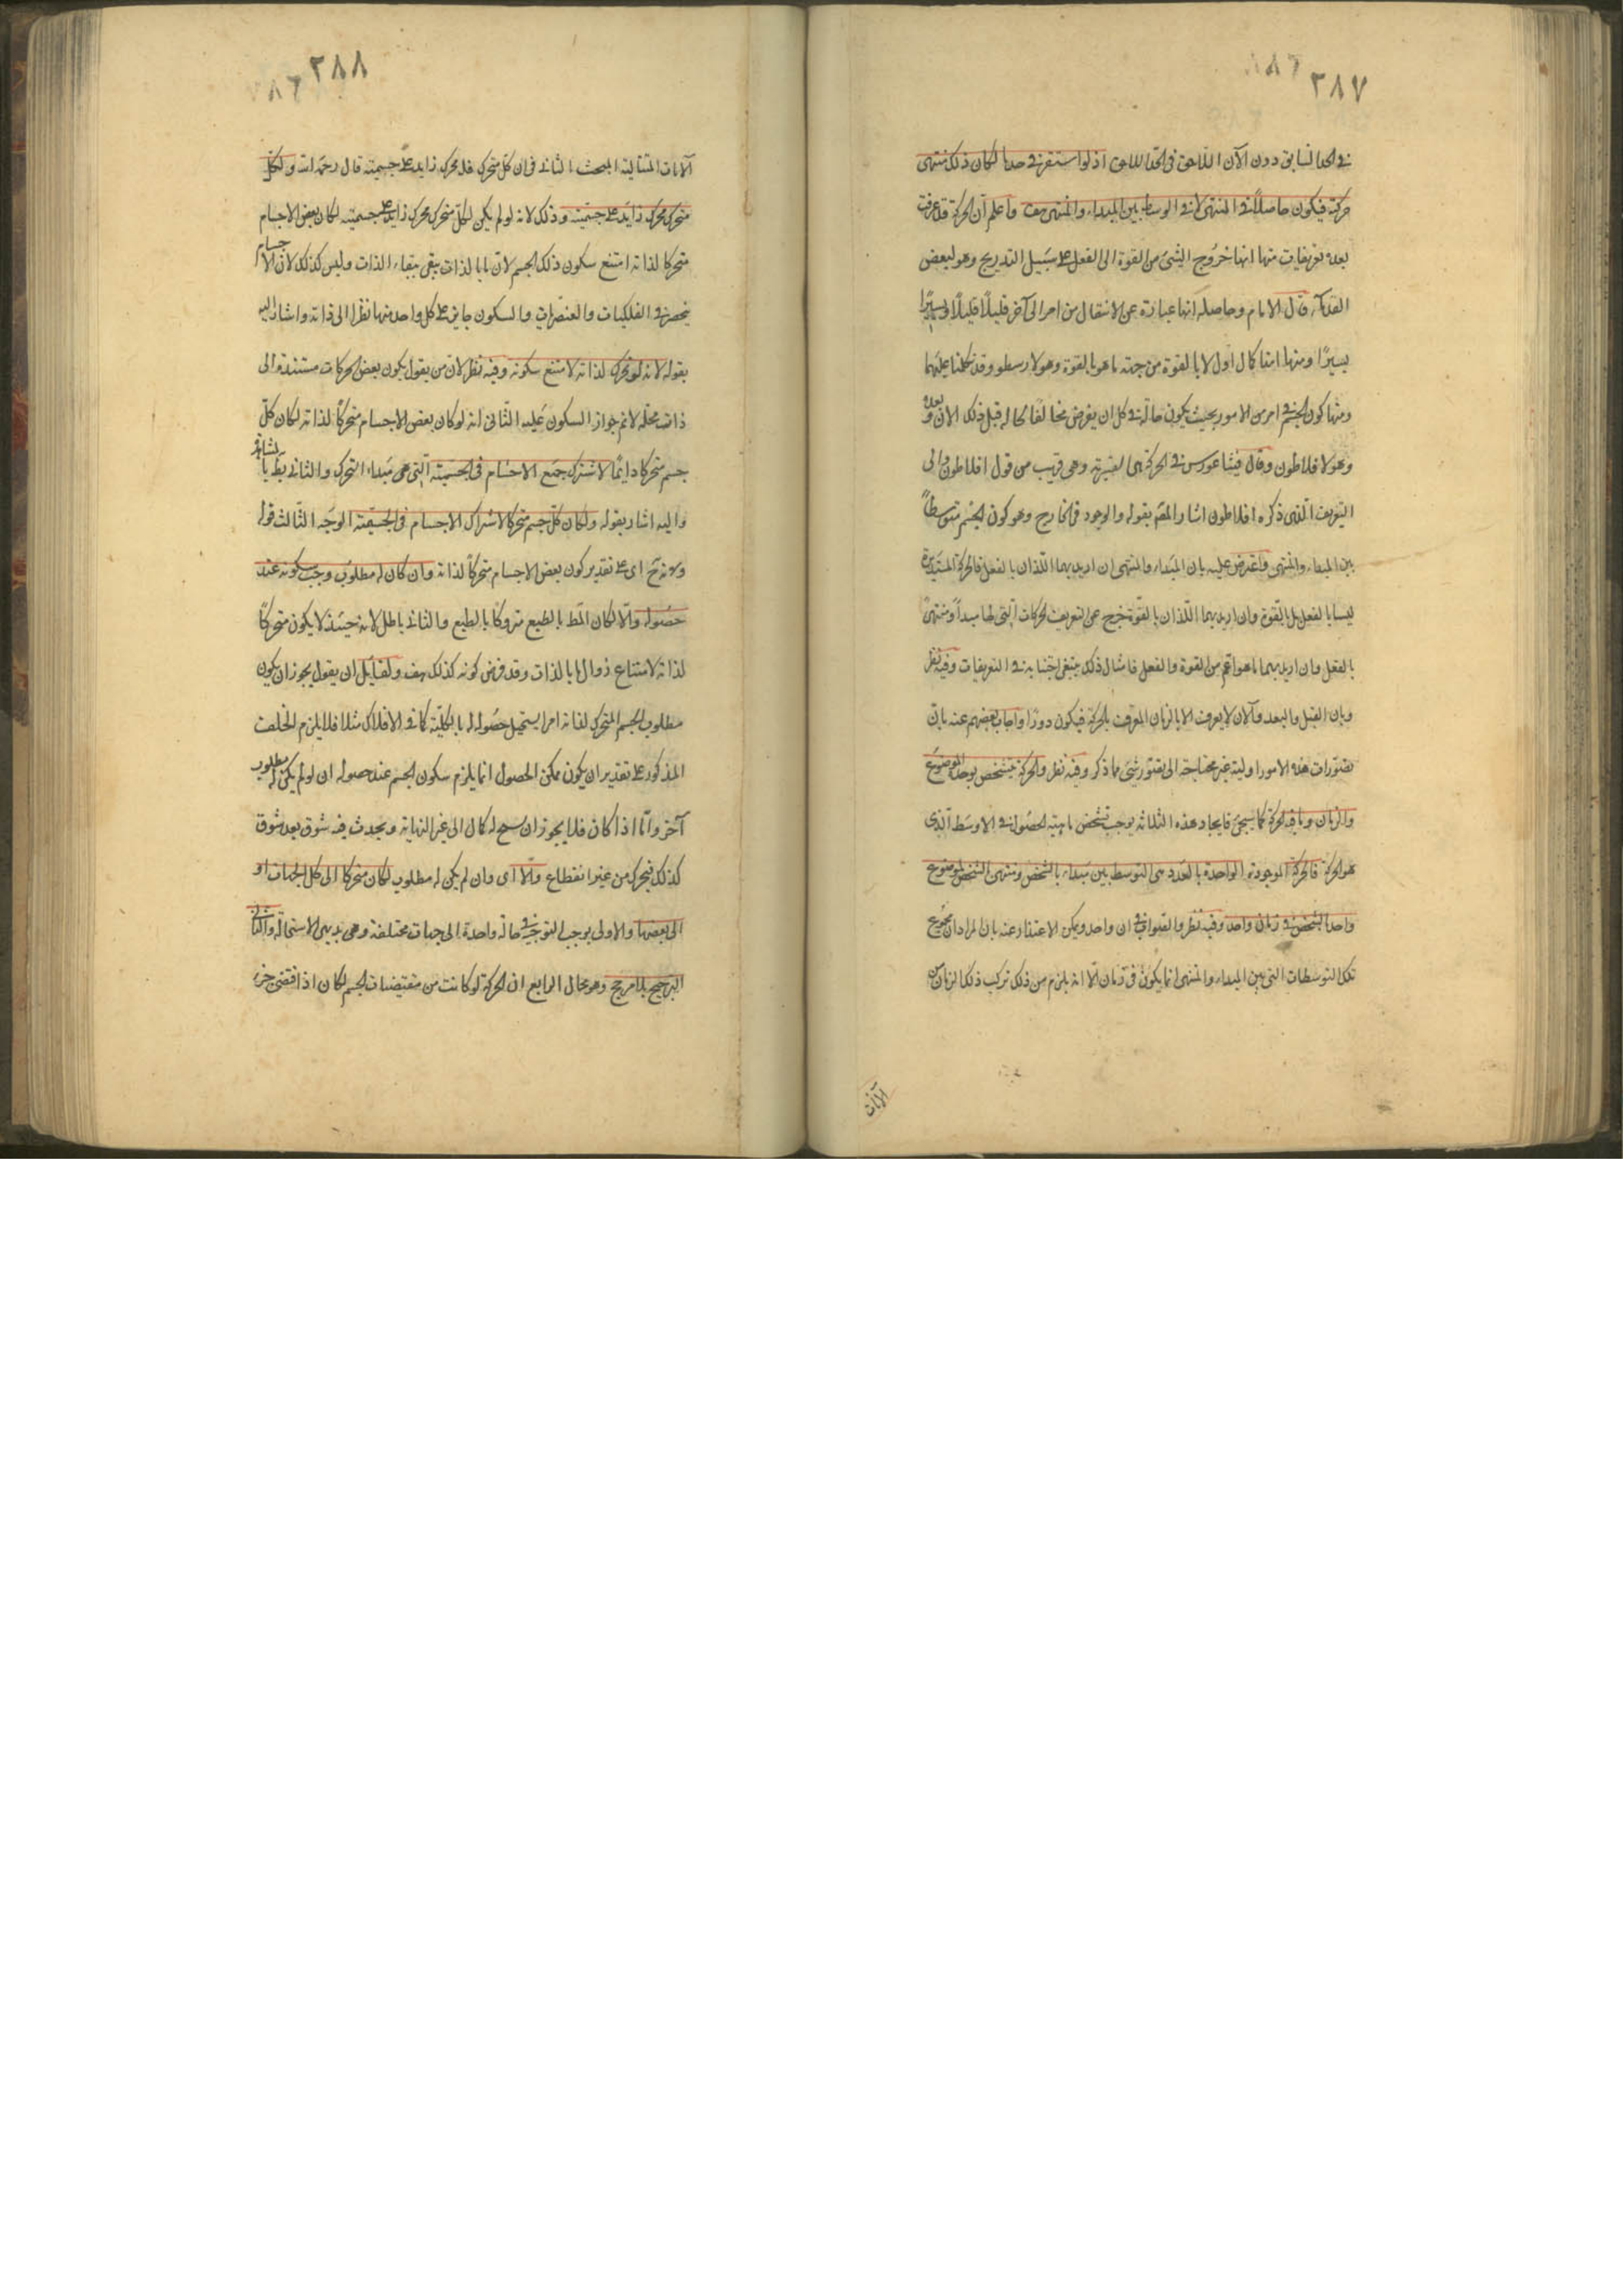 ٢٨٧
في الحد السابق دون الآن اللاحق في الحد اللاحق اذ لو استقر في حدما لكان ذلك منتهى
حركته فيكون حاصلا في المنتهى لا في الوسط بين المبداء والمنتهى هف واعلم ان الحركة قد عرفت
بعدة تعريفات منها انها خروج الشئ من القوة الى الفعل على سبيل التدريج وهو لبعض
القدماء قال الامام وحاصله انها عبارة عن الانتقال من امر الى آخر قليلًا قليلًا او يسيرًا
يسيرًا ومنها انها كمال اول لما بالقوة من جهة ما هو بالقوة وهو لارسطو وقد تكلمنا عليهما
ومنها كون الجسم في امر من الامور بحيث يكون حاله في كل ان يفرض مخالفًا لحاله قبل ذلك الان وبعده
وهو لافلاطون وقال فيثاغورس في الحركة هي الغيرية وهي قريب من قول افلاطون والى
التعريف الذي ذكره افلاطون اشار المصّ بقوله والوجود في الخارج وهو كون الجسم متوسطاً
بين المبداء والمنتهى واعترض عليه بان المبداء والمنتهى ان اريد بهما اللذان بالفعل فالحركة المستديرة
ليسا بالفعل بل بالقوة وان اريد بهما اللذان بالقوة خرج عن التعريف الحركات التي لها مبدأ ومنتهىً
بالفعل وان اريد بهما ما هو اعم من القوة والفعل فامثال ذلك ينبغى اجتنابه في التعريفات وفيه نظر
وبان القبل والبعد والآن لا يعرف الا بالزمان المعرف بالحركة فيكون دورًا واجاب بعضهم عنه بان
تصورات هذه الامور اولية غير محتاجة الى تصور شئ مما ذكر وفيه نظر والحركة يتشخص بوحدة الموضوع
والزمان وما فيه الحركة كما سيجئ فايجاد هذه الثلاثة يوجب تشخص ماهية الحصول في الاوسط الذي
هو الحركة فالحركة الموجودة الواحدة بالعدد هي التوسط بين مبداء بالشخص ومنتهى بالشخص لموضوع
واحد بالشخص في زمان واحد وفيه نظر والصواب في ان واحد ويمكن الاعتذار عنه بان المراد ان مجموع
تلك التوسطات التي بين المبداء والمنتهى انما يكون في زمان الّا انه يلزم من ذلك تركب ذلك الزمان من
الآنات
٢٨٨
الآنات المتتالية المبحث الثاني في ان كل متحرك فله محرك زايد على جسميته قال رحمه الله ولكل
متحرك محرك زايد على جسميته وذلك لانه لو لم يكن لكل متحرك محرك زايد على جسميته لكان بعض الاجسام
متحركا لذاته امتنع سكون ذلك الجسم لان ما بالذات يبقى ببقاء الذات وليس كذلك لان الاجسام
ينحصر في الفلكيات والعنصريات والسكون جايز على كل واحد منها نظرا الى ذاته واشار اليه
بقوله لانه لو تحرك لذاته لامتنع سكونه وفيه نظر لان من يقول بكون بعض الحركات مستندة الى
ذات محله لا نم جواز السكون عليه الثاني انه لو كان بعض الاجسام متحركًا لذاته لكان كل
جسم متحركا دايمًا لاشتراك جميع الاجسام في الجسمية التي هي مبداء التحرك والثاني بط بالمشاهدة
واليه اشار بقوله ولكان كل جسم متحركا لاشتراك الاجسام في الجسمية الوجه الثالث قوله
ولانه ح اى على تقدير كون بعض الاجسام متحركًا لذاته وان كان له مطلوب وجب سكونه عند
حصوله والّا لكان المط بالطبع متروكًا بالطبع والثاني باطل لانه حينئذ لا يكون متحركًا
لذاته لامتناع زوال ما بالذات وقد فرض كونه كذلك هف ولقايل ان يقول يجوز ان يكون
مطلوب الجسم المتحرك لذاته امرا يستحيل حصوله له بالكلية كما في الافلاك مثلا فلا يلزم الخلف
المذكور على تقدير ان يكون ممكن الحصول انما يلزم سكون الجسم عند حصوله ان لو لم يكن له مطلوب
آخر وامّا اذا كان فلا يجوز ان سنح له كمال الى غير النهاية ويحدث فيه شوق بعد شوق
كذلك فيتحرك من غير انقطاع والّا اى وان لم يكن له مطلوب لكان متحركا الى كل الجهات او
الى بعضها والاولى يوجب التوجه في حالة واحدة الى جهات مختلفة وهى بديهى الاستحالة والثانى
الترجيح بلا مرجح وهو محال الرابع ان الحركة لو كانت من مقتضيات الجسم لكان اذا اقتضى جزء